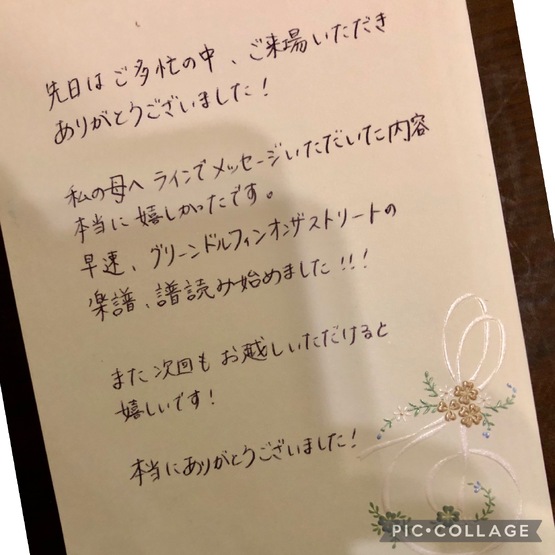 先日はご多忙の中、ご来場いただき
ありがとうございました!
私の母へラインでメッセージいただいた内容
本当に嬉しかったです。
早速、グリーンドルフィンオンザストリートの
楽譜、譜読み始めました!!!
また次回もお越しいただけると
嬉しいです!
本当にありがとうございました!
PIC•COLLAGE